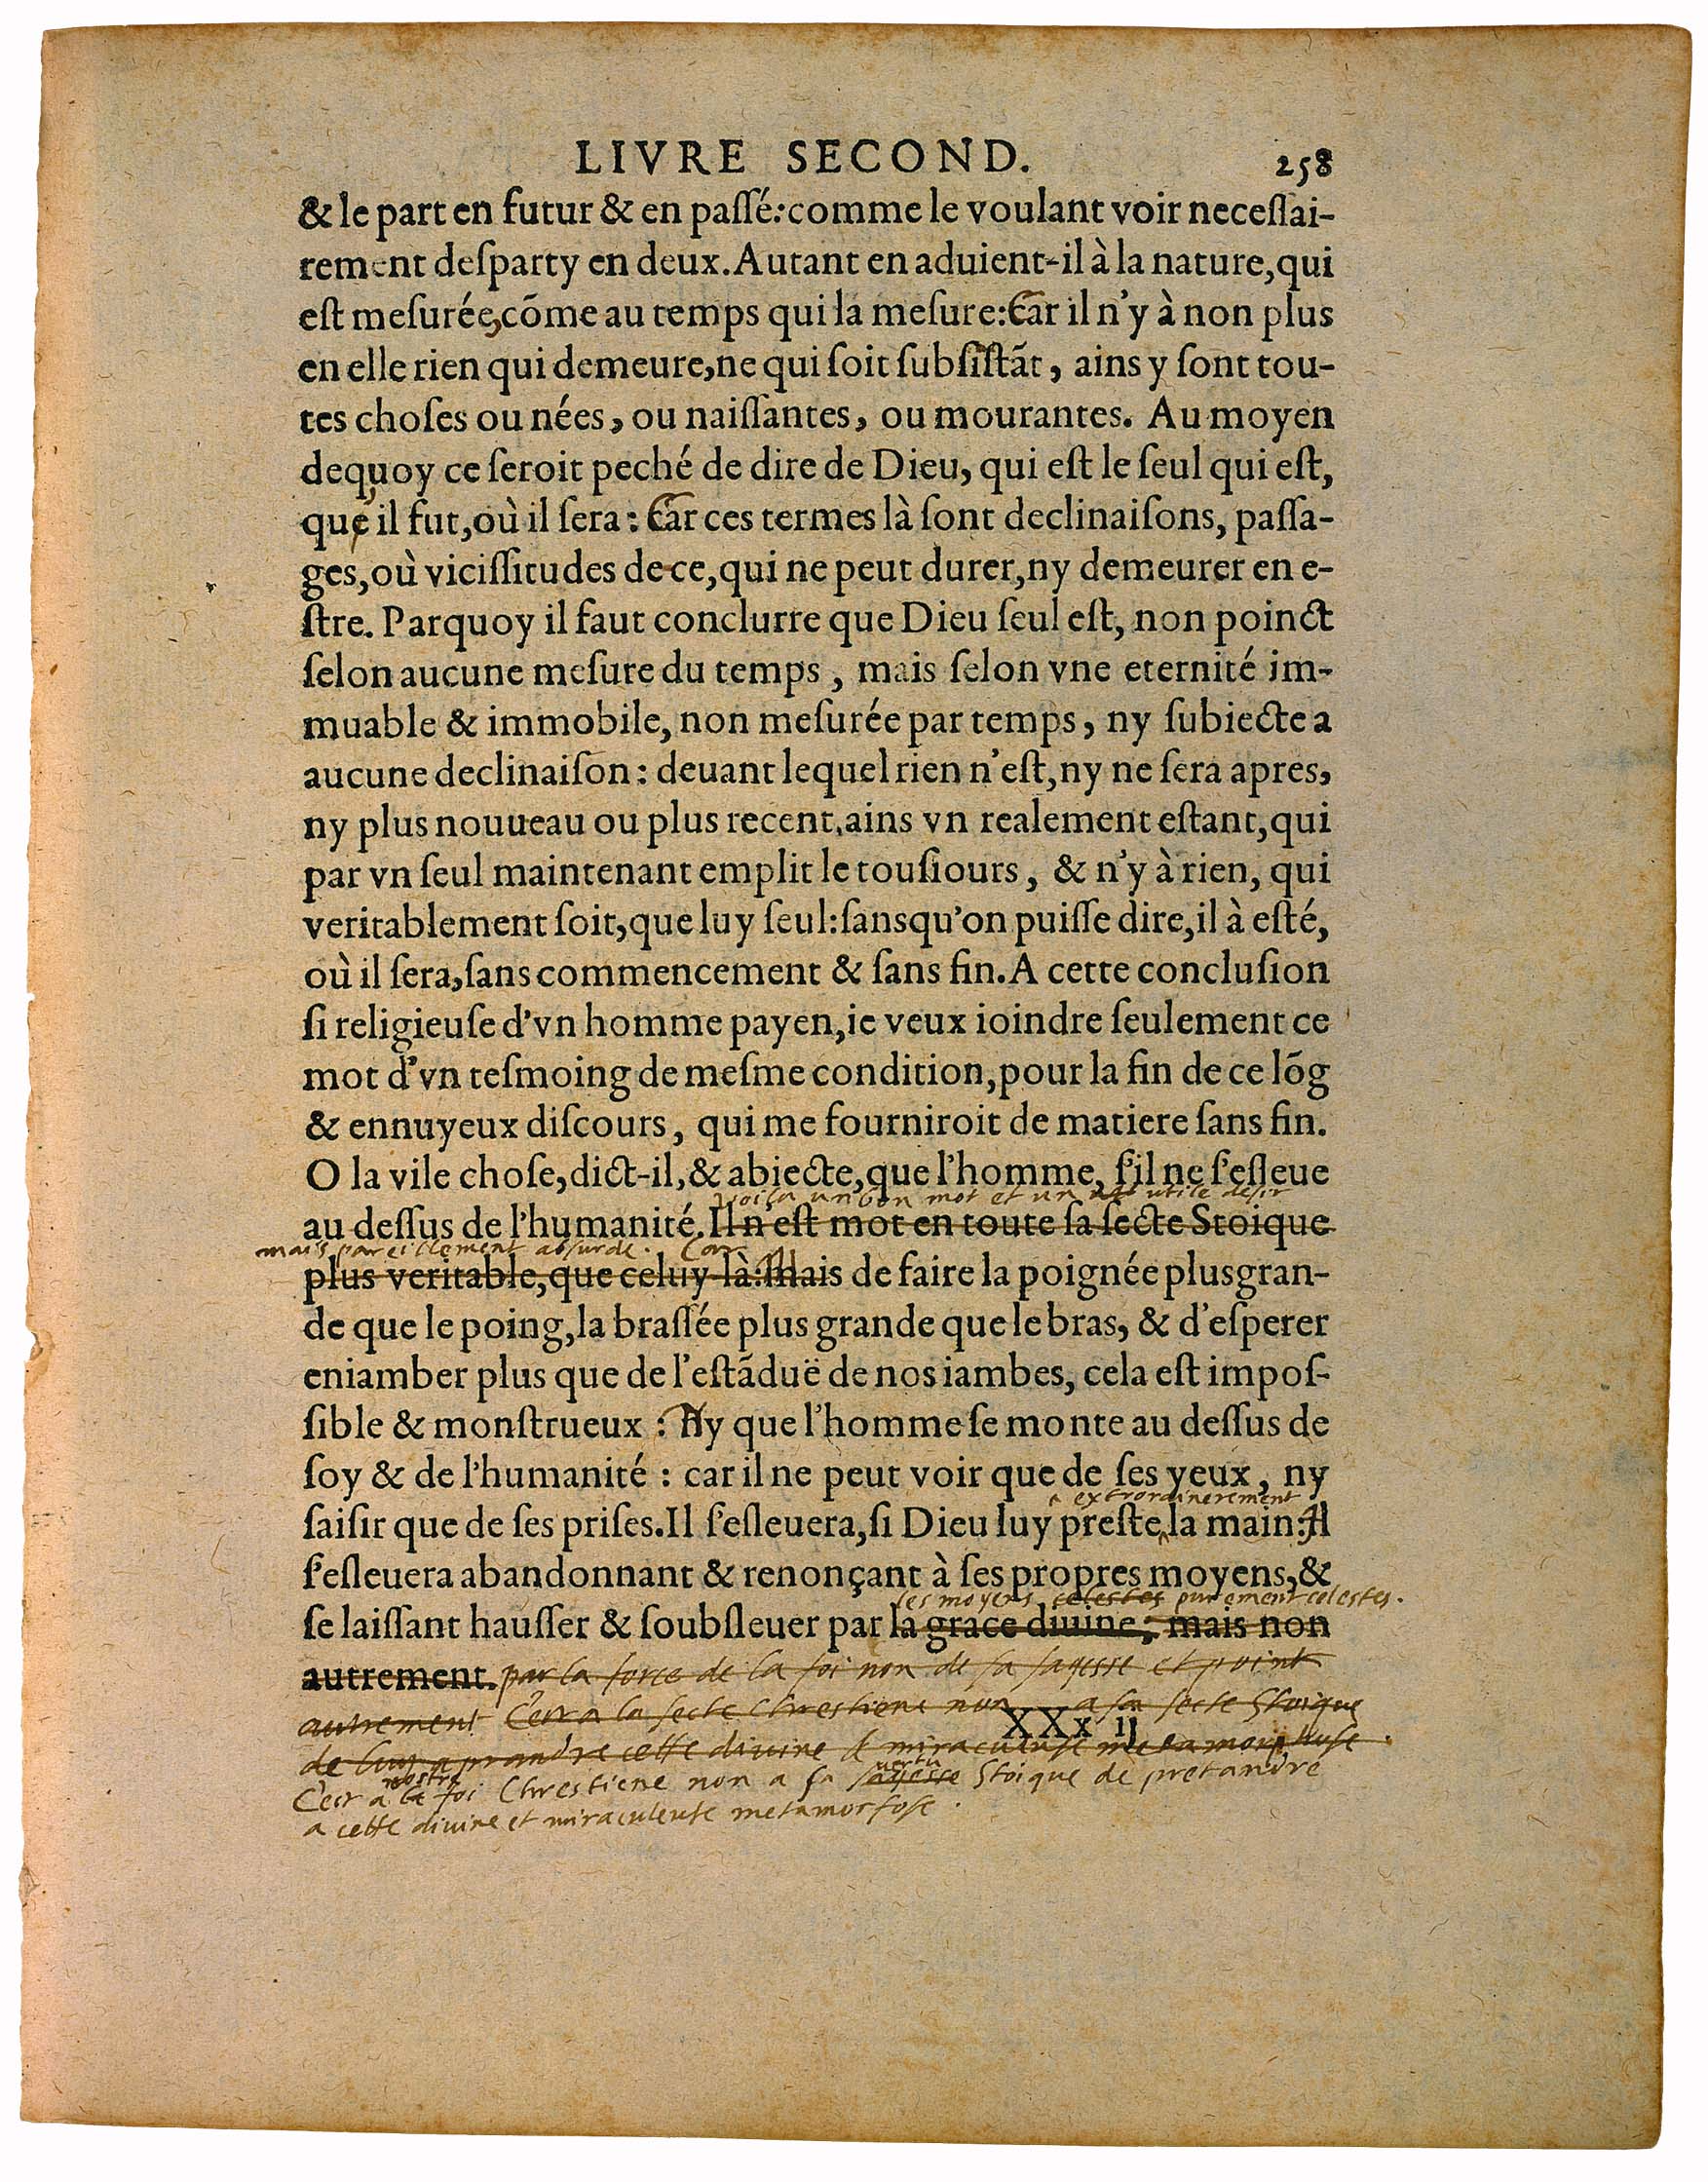 LIVRE SECOND. 258
& le part en futur & en paſſé: comme le voulant voir neceſſai-
rement deſparty en deux. Autant en aduient-il à la nature, qui
eſt meſurée, cõme au temps qui la meſure: Car il n'y à non plus
en elle rien qui demeure, ne qui ſoit ſubſiſtãt, ains y ſont tou-
tes choſes ou nées, ou naiſſantes, ou mourantes. Au moyen
dequoy ce ſeroit peché de dire de Dieu, qui eſt le ſeul qui eſt,
que il fut, où il ſera: Car ces termes là ſont declinaiſons, paſſa-
ges, où viciſſitudes de ce, qui ne peut durer, ny demeurer en e-
ſtre. Parquoy il faut conclurre que Dieu ſeul eſt, non poinct
ſelon aucune meſure du temps, mais ſelon vne eternité im-
muable & immobile, non meſurée par temps, ny ſubiecte a
aucune declinaiſon: deuant lequel rien n'eſt, ny ne ſera apres,
ny plus nouueau ou plus recent, ains vn realement eſtant, qui
par vn ſeul maintenant emplit le touſiours, & n'y à rien, qui
veritablement ſoit, que luy ſeul: ſans qu'on puiſſe dire, il à eſté,
où il ſera, ſans commencement & ſans fin. A cette concluſion
ſi religieuſe d'vn homme payen, ie veux ioindre ſeulement ce
mot d'vn teſmoing de meſme condition, pour la fin de ce lõg
& ennuyeux diſcours, qui me fourniroit de matiere ſans fin.
O la vile choſe, dict-il, & abiecte, que l'homme, ſ'il ne ſ'eſleue
voila un bon mot et un utile desir
au deſſus de l'humanité. Il n'eſt mot en toute ſa ſecte Stoique
mais pareillement absurde. Car
plus veritable, que celuy-là: Mais de faire la poignée plus gran-
de que le poing, la braſſée plus grande que le bras, & d'eſperer
eniamber plus que de l'eſtãduë de nos iambes, cela eſt impoſ-
ſible & monſtrueux: Ny que l'homme ſe monte au deſſus de
ſoy & de l'humanité: car il ne peut voir que de ſes yeux, ny
extrordinerement
ſaiſir que de ſes priſes. Il ſ'eſleuera, ſi Dieu luy preſte la main: Il
ſ'eſleuera abandonnant & renonçant à ſes propres moyens, &
les moyens celestes purement celestes.
ſe laiſſant hauſſer & ſoubſleuer par la grace diuine; mais non
autrement. par la force de la foi non de sa sagesse et point
autrement C'est a la secte Chrestiene non a sa secte Stoique
XXx ij
de prandre cette divine & miraculeuse metamorphose.
nostre vertu
C'est a la foi Chrestiene non a sa sagesse Stoique de pretandre
a cette divine et miraculeuse metamorfose.